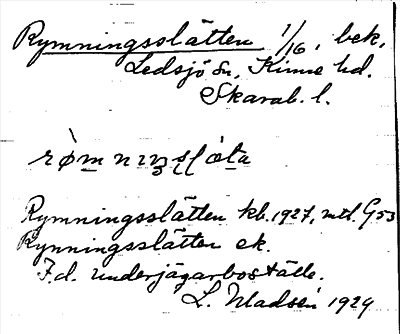 Rymningsslätten 1/16, bek,
Ledsjö sn, Kinne hd.
Skarab. l.
Rymningsslätten kb. 1927, mtl. G53
Rynningsslätten ek.
F.d. underjägarboställe.
L. Madsén 1929